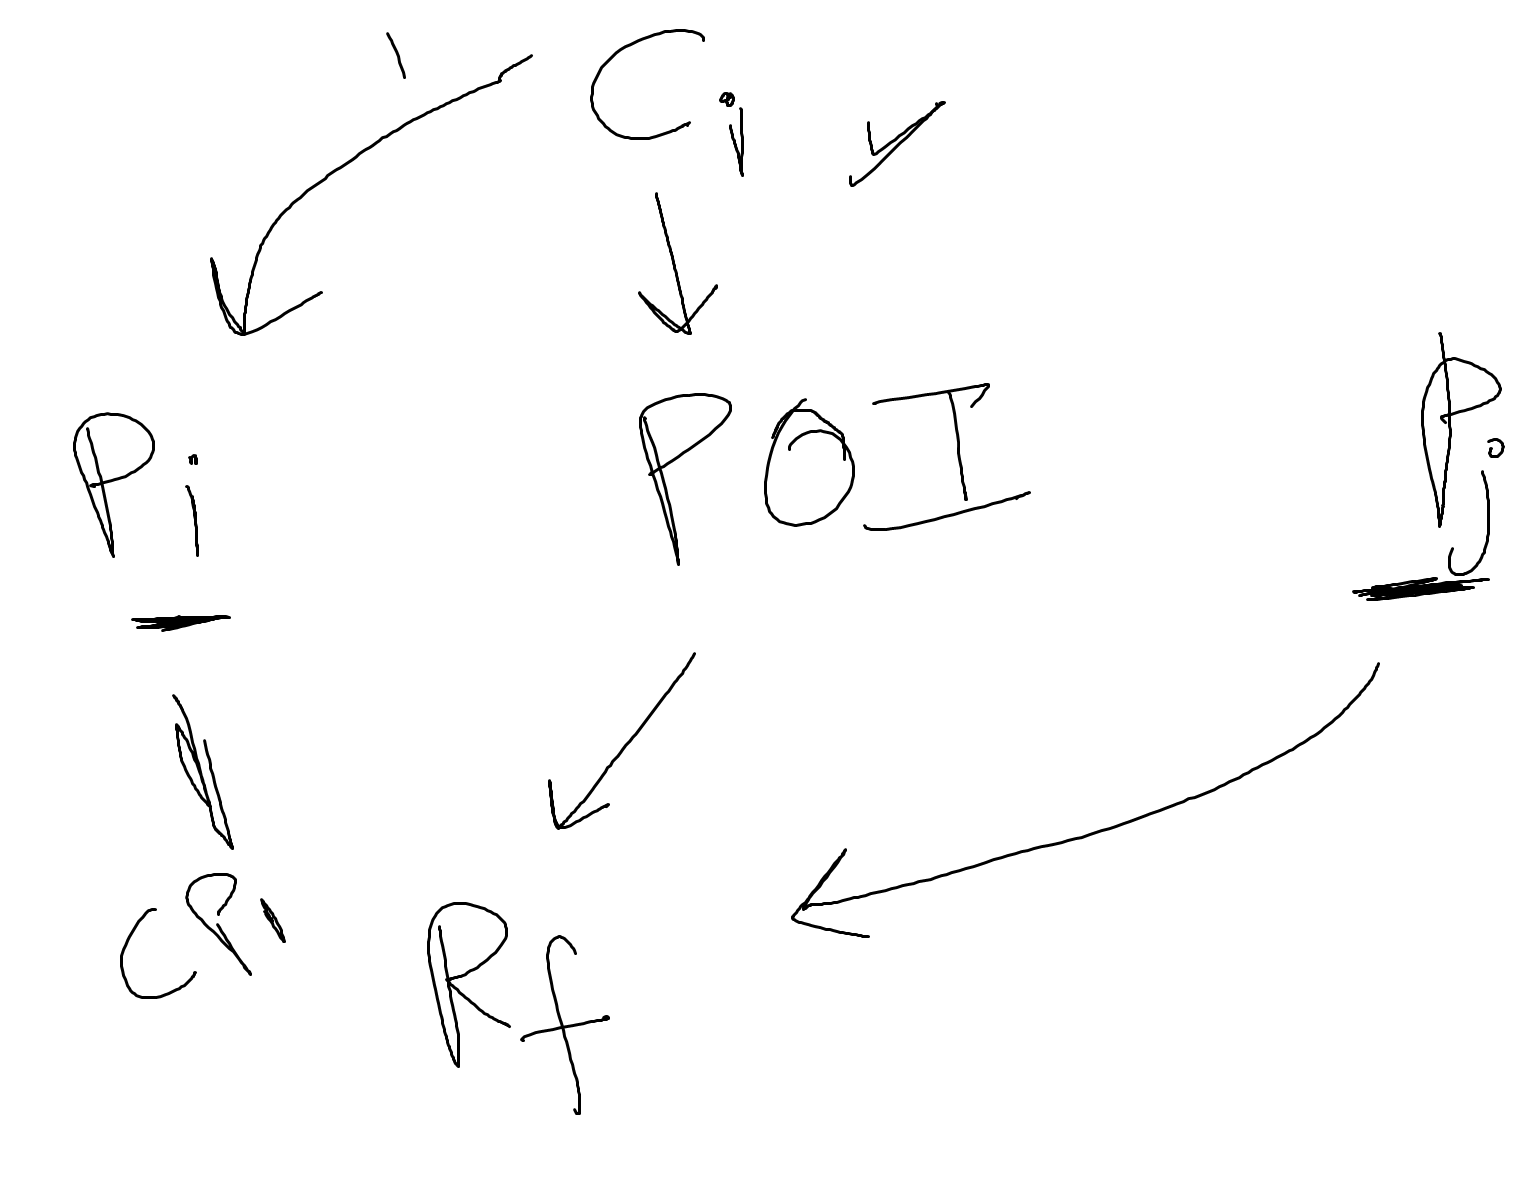 Ci
Pi POI Pj
CPi Rf